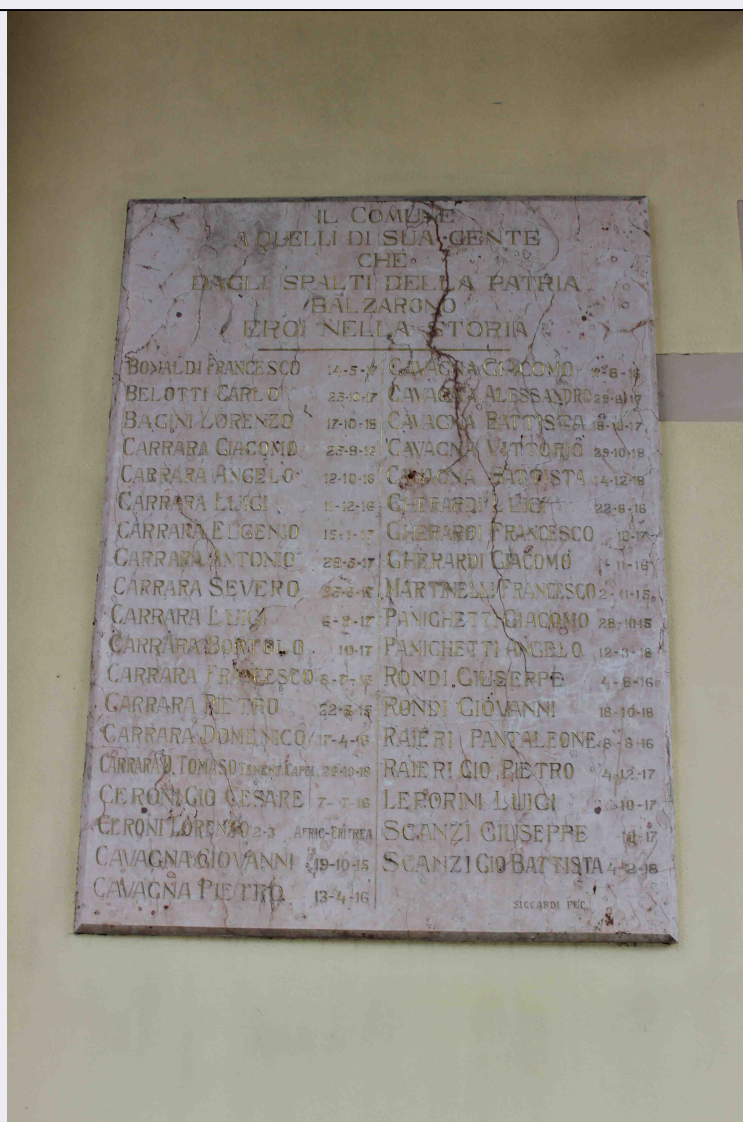 IL COMUNE
A QUELLI DI SUA GENTE
CHE
DAGLI SPALTI DELLA PATRIA
BALZARONO
EROI NELLA STORIA
BONALDI FRANCESCO
BELOTTI CARLO 23-10-17
BAGINI LORENZO 17-10-18
CARRARA GIACOMO
CARRARA ANGELO 12-10-16
CARRARA LUIGI 11-12-16
CARRARA EUGENIO
CARRARA ANTONIO 28-5-17
CARRARA SEVERO
CARRARA LUIGI
CARRARA BORTOLO 10-17
CARRARA FRANCESCO
CARRARA PIETRO
CARRARA DOMENICO 17-4-18
CARRARA D. TOMASO TENENT. CAPOL.
CERONI GIO CESARE 7-7-16
CERONI LORENZO 2-3 AFRIC-ERITREA
CAVAGNA GIOVANNI 19-10-15
CAVAGNA PIETRO 13-4-16
CAVAGNA GIACOMO
CAVAGNA ALESSANDRO
CAVAGNA BATTISTA
CAVAGNA VITTORIO 29-10-18
CAVAGNA BATTISTA 14-12-18
GHERARDI LUIGI 22-6-16
GHERARDI FRANCESCO 10-17
GHERARDI GIACOMO
MARTINELLI FRANCESCO 2-11-15
PANIGHETTI GIACOMO 28-10-15
PANIGHETTI ANGELO 12-3-18
RONDI GIUSEPPE 4-8-16
RONDI GIOVANNI 18-10-18
RAIERI PANTALEONE 8-8-16
RAIERI GIO PIETRO 4-12-17
LEPORINI LUIGI
SCANZI GIUSEPPE
SCANZI GIO BATTISTA 4-2-18
SICCARDI FEC.